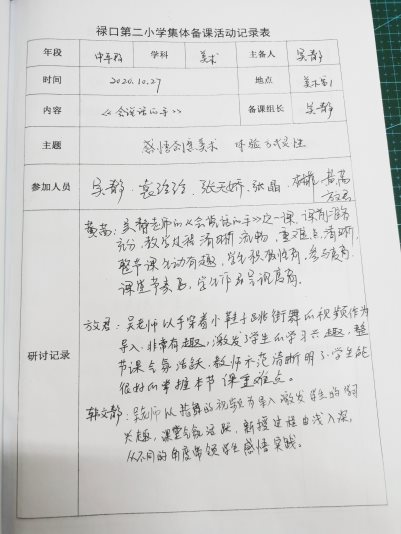 禄口第二小学集体备课活动记录表
年段 中年段 学科 美术 主备人 吴静
时间 2020.10.27 地点 美术室1
内容 《会说话的手》 备课组长 吴静
主题 感悟创意美术 体验
参加人员 吴静 袁玲玲 张天娇 张晶 黄茜
方君
研讨记录
黄茜：吴静老师的《会说话的手》这一课，课前准备
充分，教学过程清晰流畅，重难点清晰，
整节课生动有趣，学生积极性高，参与度高，
课堂节奏，学生作品呈现高。
方君：吴老师以手穿着小鞋子跳街舞的视频作为
导入，非常有趣，激发了学生的学习兴趣，整
节课气氛活跃，教师示范清晰明了，学生能
很好的掌握本节课重难点。
韩文静：吴老师以指舞的视频为导入激发学生的学习
兴趣，课堂气氛活跃，新授过程由浅入深，
从不同的角度带领学生感悟实践。